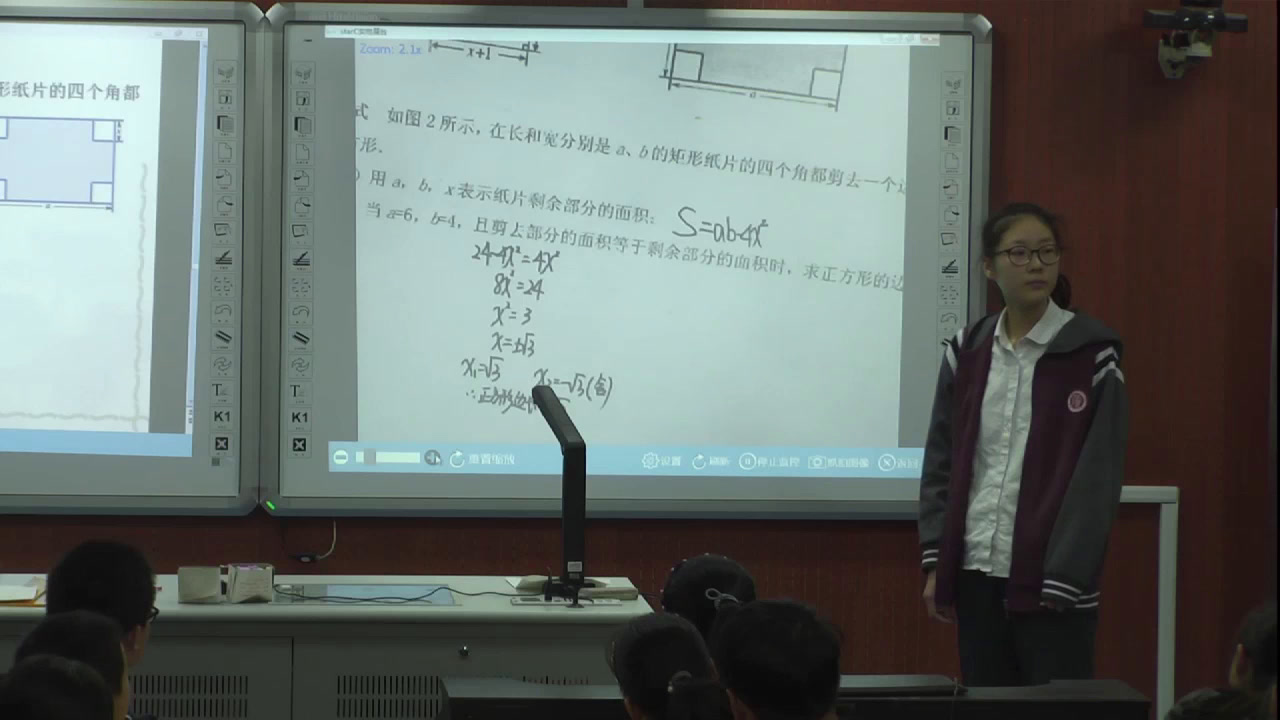 形纸片的四个角都
Zoom: 2.1x
x+1
a
式 如图2所示，在长和宽分别是a、b的矩形纸片的四个角都剪去一个
方形.
用a，b，x表示纸片剩余部分的面积；
S=ab-4x²
当a=6，b=4，且剪去部分的面积等于剩余部分的面积时，求正方形的边
24-4x²=4x²
8x²=24
x²=3
x=±√3
x₁=√3 x₂=-√3(舍)
∴正方形边
重置缩放 设置 刷新 停止监控 返回
T
K1
T
K1